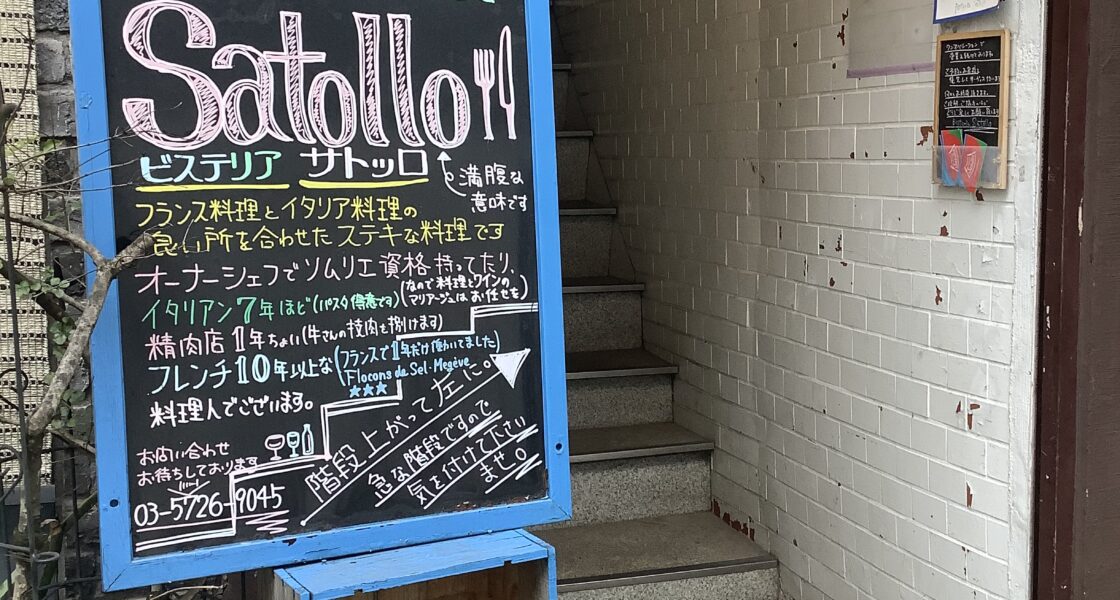 Satollo
ビステリア サトッロ
満腹な
意味です
フランス料理とイタリア料理の
良い所を合わせたステキな料理です
オーナーシェフでソムリエ資格持ってたり、
(なので料理とワインの
マリアージュはお任せを)
イタリアン7年ほど(パスタ得意です)
精肉店1年ちょい(牛さんの枝肉も捌けます)
フレンチ10年以上な
(フランスで1年だけ働いてました)
Flocons de Sel-Megève
★★★
料理人でございます。
階段上がって左に。
急な階段ですので
気を付けて下さい
ませ。
お問い合わせ
お待ちしております
03-5726-9045